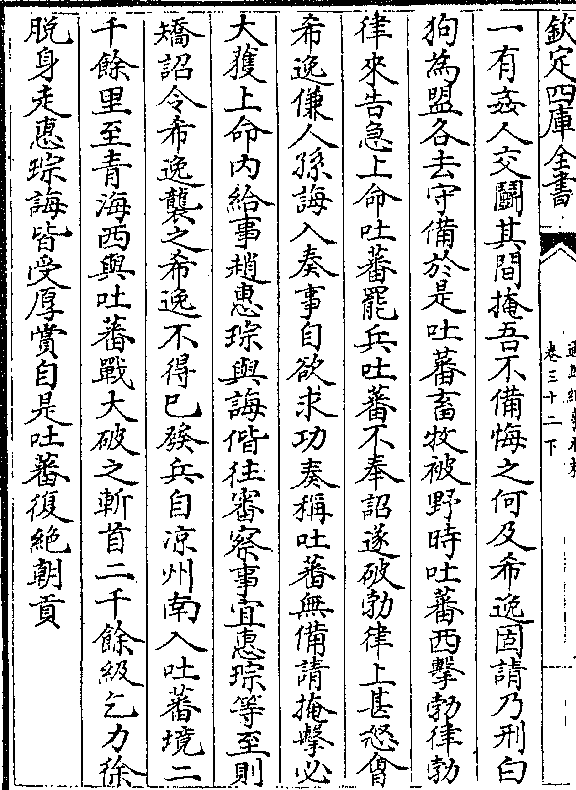 欽定四庫全書
卷三十二下
一有姦人交鬬其間掩吾不備悔之何及希逸固請乃刑白
狗為盟各去守備於是吐蕃畜牧被野時吐蕃西擊勃律勃
律來告急上命吐蕃罷兵吐蕃不奉詔遂破勃律上甚怒會
希逸傔人孫誨入奏事自欲求功奏稱吐蕃無備請掩擊必
大獲上命内給事趙惠琮與誨偕往審察事宜惠琮等至則
矯詔令希逸襲之希逸不得已發兵自凉州南入吐蕃境二
千餘里至青海西與吐蕃戰大破之斬首二千餘級乞力徐
脱身走惠琮誨皆受厚賞自是吐蕃復絶朝貢